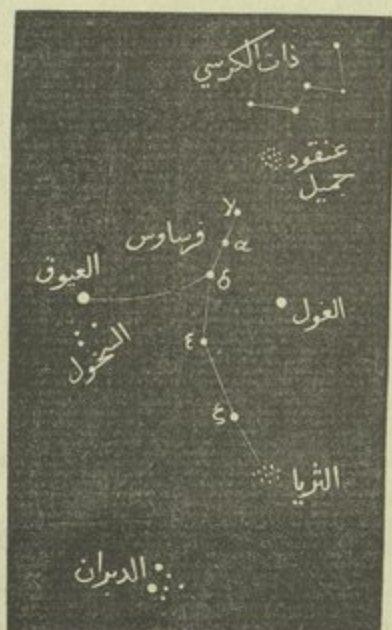 ذات الكرسي
عنقود
جميل
γ
فرساوس
α
δ
العيوق
الغول
السخول
ε
ζ
الثريا
الدبران